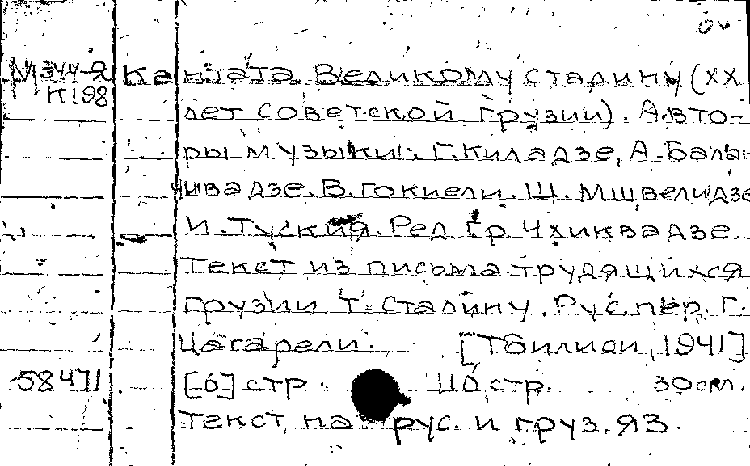 М344-Я Кантата Великому сталину (XX
К198 лет советской Грузии). Авто-
ры музыки: Г. Киладзе, А. Балан-
чивадзе. В. Гокиели. Ш. Мшвелидзе
И. Туский. Ред Гр. Чхиквадзе.
Текст из письма трудящихся
Грузии Т. Сталину. Рус. пер. Г.
Цагарели. [Тбилиси, 1941]
58471 [6] стр. 110 стр. 30см.
Текст на рус. и груз. яз.